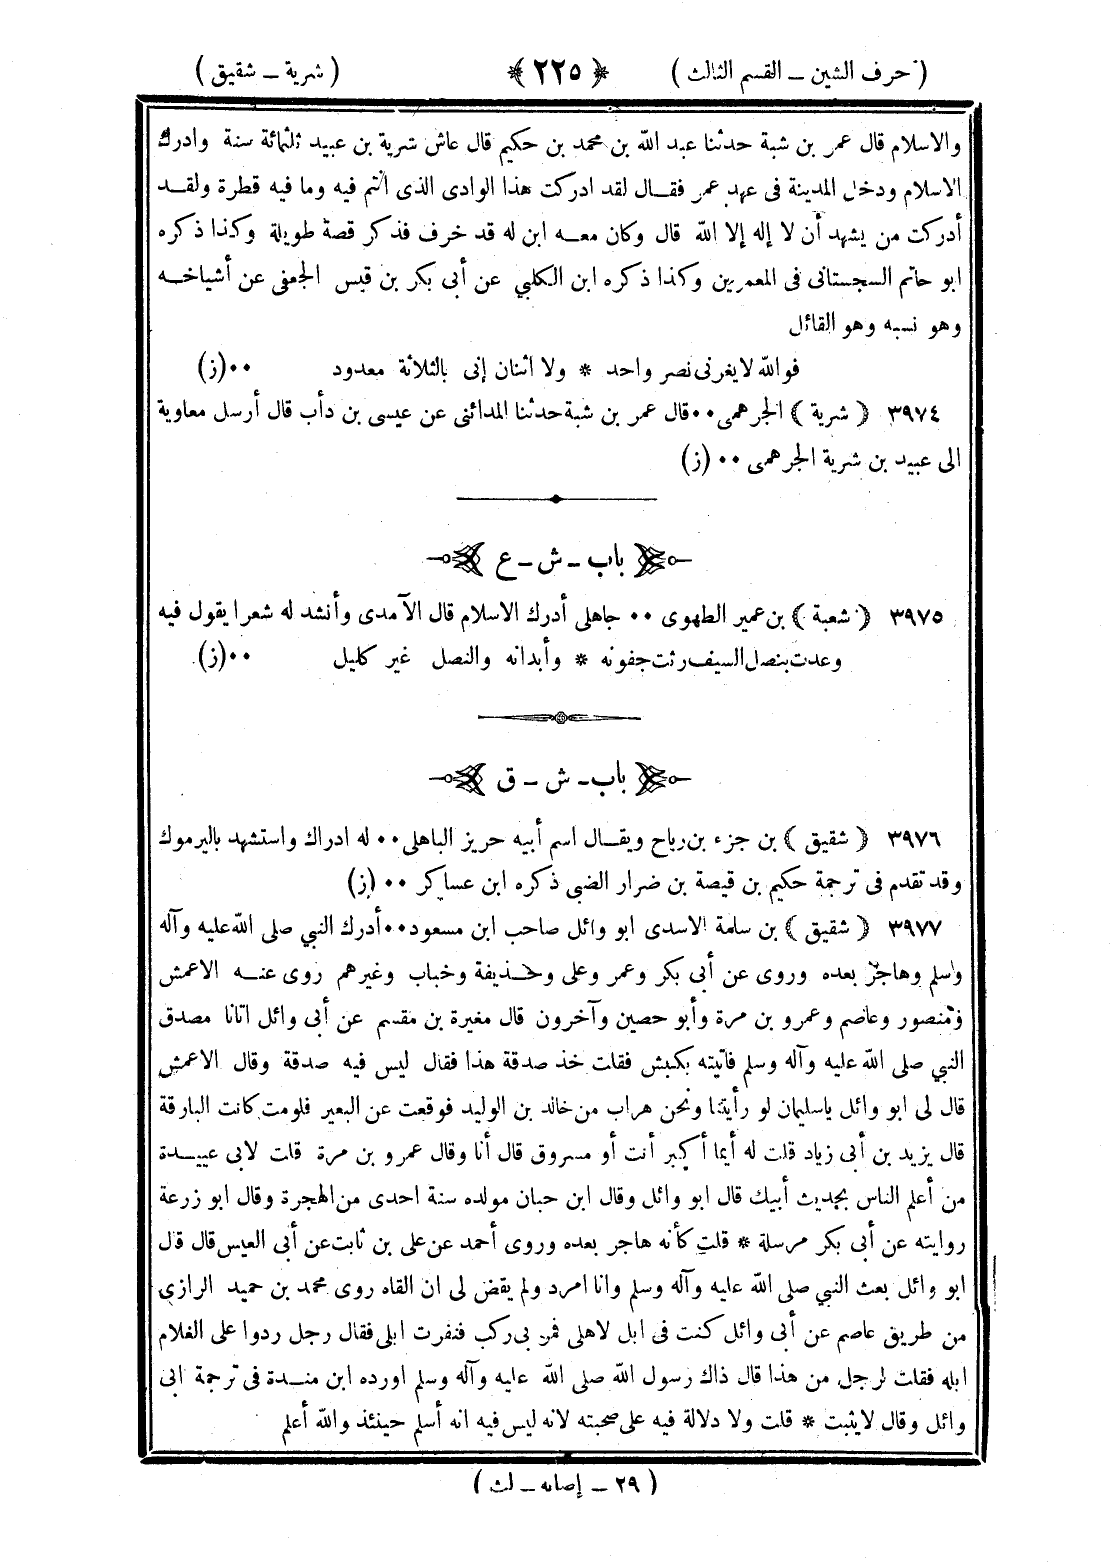 ( حرف الشين – القسم الثالث ) ﴿ ٢٢٥ ﴾ ( شرية – شقيق )
والاسلام قال عمر بن شبة حدثنا عبد الله بن محمد بن حكيم قال عاش شرية بن عبيد ثلثمائة سنة وادرك
الاسلام ودخل المدينة فى عهد عمر فقال لقد ادركت هذا الوادى الذى انتم فيه وما فيه قطرة ولقد
أدركت من يشهد أن لا إله إلا الله قال وكان معه ابن له قد خرف فذكر قصة طويلة وكذا ذكره
ابو حاتم السجستانى فى المعمرين وكذا ذكره ابن الكلبي عن أبى بكر بن قيس الجعفى عن أشياخه
وهو نسبه وهو القائل
فوالله لا يغرنى نصر واحد * ولا اثنان إنى بالثلاثة معدود ٠٠(ز)
٣٩٧٤ ﴿ شرية ﴾ الجرهمى ٠٠ قال عمر بن شبة حدثنا المدائنى عن عيسى بن دأب قال أرسل معاوية
الى عبيد بن شرية الجرهمى ٠٠ (ز)
باب – ش – ع
٣٩٧٥ ﴿ شعبة ﴾ بن عمير الطهوى ٠٠ جاهلى أدرك الاسلام قال الآمدى وأنشد له شعرا يقول فيه
وعدت بنصل السيف رثت جفونه * وأبدانه والنصل غير كليل ٠٠(ز)
باب – ش – ق
٣٩٧٦ ﴿ شقيق ﴾ بن جزء بن رباح ويقال اسم أبيه حريز الباهلى ٠٠ له ادراك واستشهد باليرموك
وقد تقدم فى ترجمة حكيم بن قيصة بن ضرار الضبى ذكره ابن عساكر ٠٠ (ز)
٣٩٧٧ ﴿ شقيق ﴾ بن سلمة الاسدى ابو وائل صاحب ابن مسعود ٠٠ أدرك النبي صلى الله عليه وآله
وسلم وهاجر بعده وروى عن أبى بكر وعمر وعلى وحذيفة وخباب وغيرهم روى عنه الاعمش
ومنصور وعاصم وعمرو بن مرة وأبو حصين وآخرون قال مغيرة بن مقسم عن أبى وائل اتانا مصدق
النبي صلى الله عليه وآله وسلم فاتيته بكبش فقلت خذ صدقة هذا فقال ليس فيه صدقة وقال الاعمش
قال لى ابو وائل ياسليمان لو رأيتنا ونحن هراب من خالد بن الوليد فوقعت عن البعير فلومت كانت البارقة
قال يزيد بن أبى زياد قلت له أيما أكبر أنت أو مسروق قال أنا وقال عمرو بن مرة قلت لابى عبيدة
من أعلم الناس بحديث أبيك قال ابو وائل وقال ابن حبان مولده سنة احدى من الهجرة وقال ابو زرعة
روايته عن أبى بكر مرسلة * قلت كأنه هاجر بعده وروى أحمد عن على بن ثابت عن أبى العيس قال قال
ابو وائل بعث النبي صلى الله عليه وآله وسلم وانا امرد ولم يقض لى ان القاه روى محمد بن حميد الرازي
من طريق عاصم عن أبى وائل كنت فى ابل لاهلى فمر بى ركب فنفرت ابلى فقال رجل ردوا على الغلام
ابله فقلت لرجل من هذا قال ذاك رسول الله صلى الله عليه وآله وسلم اورده ابن منده فى ترجمة ابى
وائل وقال لايثبت * قلت ولا دلالة فيه على صحبته لانه ليس فيه انه أسلم حينئذ والله أعلم
( ٢٩ – إصابه – لث )